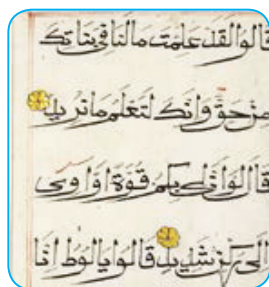 قالوا لقد علمت ما لنا في بناتك
من حق وانك لتعلم ما نريد
قال لو ان لي بكم قوة او اوى
الى ركن شديد قالوا يا لوط انا